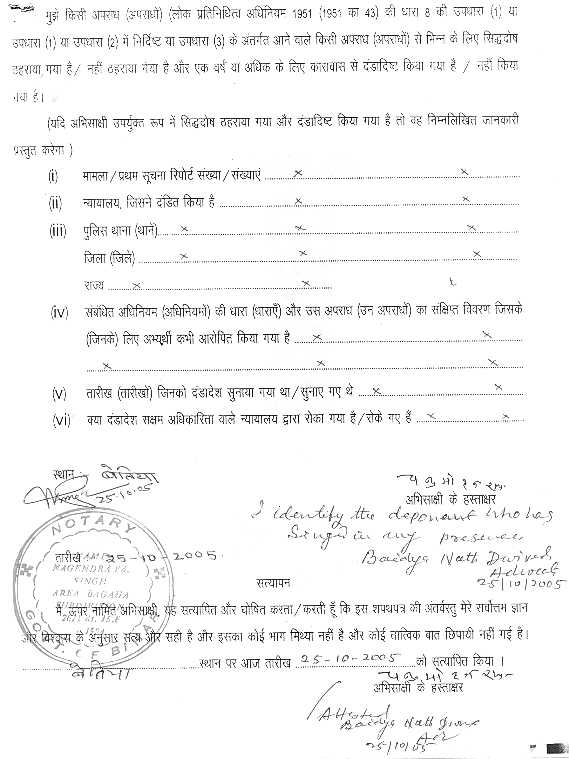 मुझे किसी अपराध (अपराधों) (लोक प्रतिनिधित्व अधिनियम 1951 (1951 का 43) की धारा 8 की उपधारा (1) या
उपधारा (1) या उपधारा (2) में निर्दिष्ट या उपधारा (3) के अंतर्गत आने वाले किसी अपराध (अपराधों) से भिन्न के लिए सिद्धदोष
ठहराया गया है / नहीं ठहराया गया है और एक वर्ष या अधिक के लिए कारावास से दंडादिष्ट किया गया है / नहीं किया
गया है।
(यदि अभिसाक्षी उपर्युक्त रूप में सिद्धदोष ठहराया गया और दंडादिष्ट किया गया है तो वह निम्नलिखित जानकारी
प्रस्तुत करेगा)
(i) मामला / प्रथम सूचना रिपोर्ट संख्या / संख्याएं × ×
(ii) न्यायालय, जिसने दंडित किया है × ×
(iii) पुलिस थाना (थाने) × × ×
जिला (जिले) × × ×
राज्य × ×
(iv) संबंधित अधिनियम (अधिनियमों) की धारा (धाराएँ) और उस अपराध (उन अपराधों) का संक्षिप्त विवरण जिसके
(जिनके) लिए अभ्यर्थी कभी आरोपित किया गया है × ×
× × ×
(v) तारीख (तारीखों) जिनको दंडादेश सुनाया गया था / सुनाए गए थे × ×
(vi) क्या दंडादेश सक्षम अधिकारिता वाले न्यायालय द्वारा रोका गया है / रोके गए हैं × ×
स्थान :- बेतिया
25.10.05
अभिसाक्षी के हस्ताक्षर
I identify the deponent who has
Singed in my presence
Baidya Nath Dwivedi
Advocate
25/10/2005
NOTARY
तारीख 25-10-2005.
NAGENDRA
SINGH
AREA BAGAHA
GOVT. OF BIHAR
सत्यापन
मैं, ऊपर नामित अभिसाक्षी, यह सत्यापित और घोषित करता / करती हूँ कि इस शपथपत्र की अंतर्वस्तु मेरे सर्वोत्तम ज्ञान
और विश्वास के अनुसार सत्य और सही है और इसका कोई भाग मिथ्या नहीं है और कोई तात्विक बात छिपायी नहीं गई है।
बेतिया स्थान पर आज तारीख 25-10-2005 को सत्यापित किया ।
अभिसाक्षी के हस्ताक्षर
Attested
Baidya Nath
25/10/05